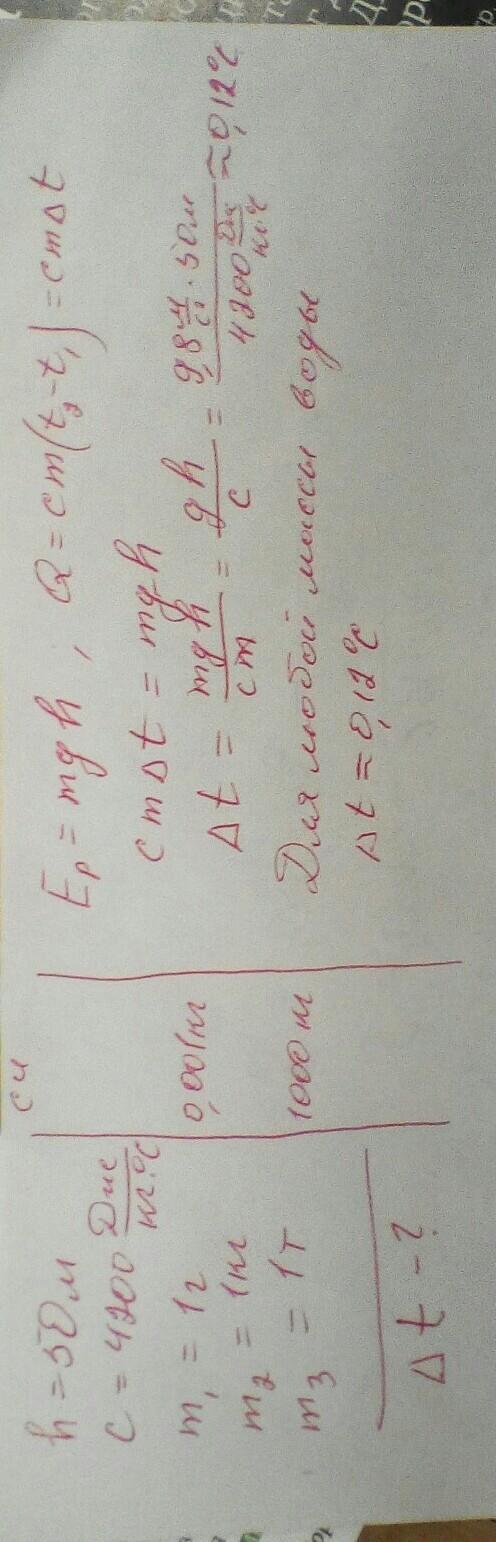 h = 50м
c = 4200 Дж/кг·°С
m₁ = 1г
m₂ = 1кг
m₃ = 1т
Δt - ?
СИ
0,001кг
1000кг
Eₚ = mgh , Q = cm(t₂ - t₁) = cmΔt
cmΔt = mgh
Δt = mgh/cm = gh/c = 9,8 м/с² · 50м / 4200 Дж/кг·°С ≈ 0,12°С
Для любой массы воды
Δt ≈ 0,12°С